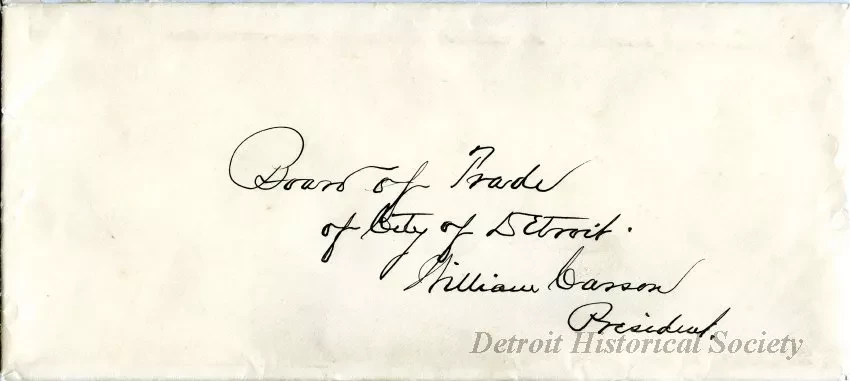 Board of Trade
of City of Detroit.
William Carson
President.
Detroit Historical Society